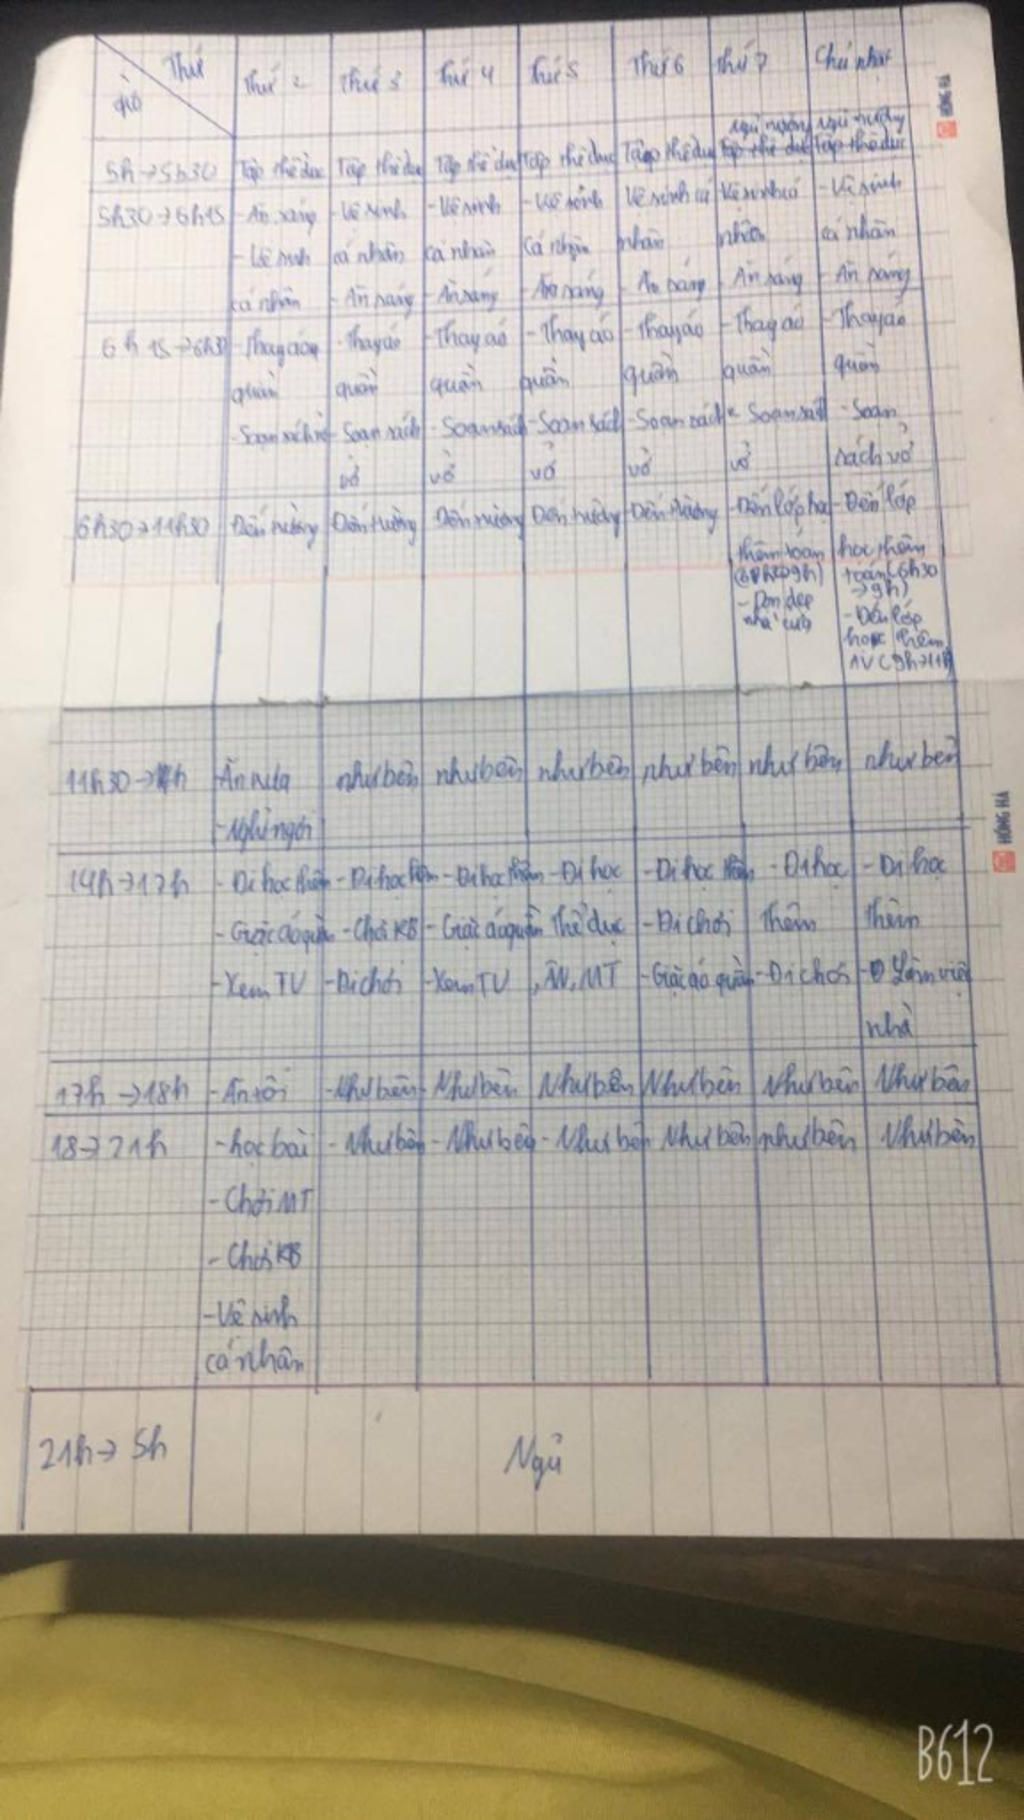 Thứ
giờ
Thứ 2 Thứ 3 Thứ 4 Thứ 5 Thứ 6 Thứ 7 Chủ nhật
ngủ nướng ngủ nướng
5h→5h30 Tập thể dục Tập thể dục Tập thể dục Tập thể dục Tập thể dục Tập thể dục Tập thể dục
5h30→6h15 - Ăn sáng - Vệ sinh - Vệ sinh - Vệ sinh Vệ sinh cá Vệ sinh cá - Vệ sinh
- Vệ sinh cá nhân cá nhân cá nhân nhân nhân cá nhân
cá nhân - Ăn sáng - Ăn sáng - Ăn sáng - Ăn sáng - Ăn sáng - Ăn sáng
6h15→6h30 - Thay áo - Thay áo - Thay áo - Thay áo - Thay áo - Thay áo - Thay áo
quần quần quần quần quần quần quần
- Soạn sách - Soạn sách - Soạn sách - Soạn sách - Soạn sách - Soạn sách - Soạn
vở vở vở vở vở sách vở
6h30→11h30 Đến trường Đến trường Đến trường Đến trường Đến trường - Đến lớp học - Đến lớp
thêm toán học thêm
toán (6h30
→9h)
- Dọn dẹp - Đến lớp
nhà cửa học thêm
AV (9h→11h)
11h30→14h - Ăn trưa như bên như bên như bên như bên như bên như bên
- Nghỉ ngơi
14h→17h - Đi học thêm - Đi học thêm - Đi học thêm - Đi học - Đi học thêm - Đi học - Đi học
- Giặt áo quần - Chơi KB - Giặt áo quần Thể dục - Đi chơi thêm thêm
- Xem TV - Đi chơi - Xem TV , ÂN, MT - Giặt áo quần - Đi chơi - Làm việc
nhà
17h→18h - Ăn tối - Như bên - Như bên Như bên Như bên Như bên Như bên
18→21h - học bài - Như bên - Như bên - Như bên Như bên như bên Như bên
- Chơi MT
- Chơi KB
- Vệ sinh
cá nhân
21h→5h Ngủ
HỒNG HÀ
B612